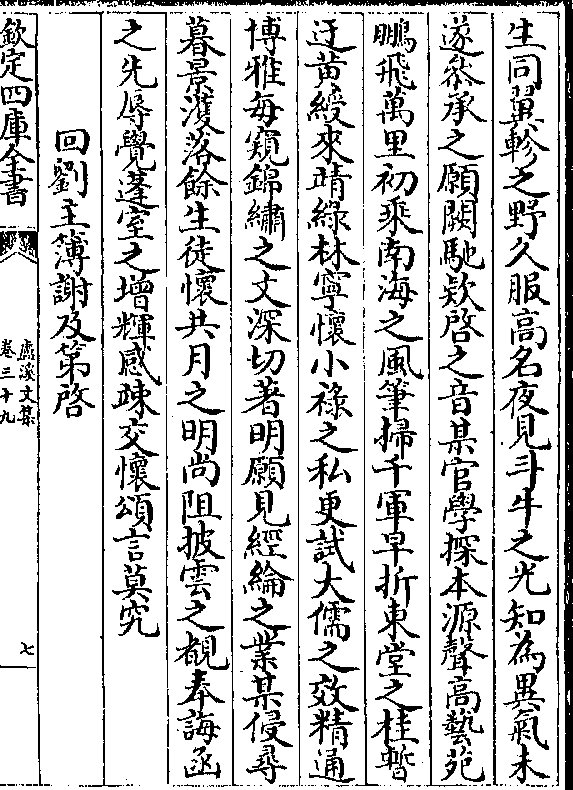 生同翼軫之野久服高名夜見斗牛之光知為異氣未
遂叅承之願闕馳欵啓之音某官學探本源聲高藝苑
鵬飛萬里初乘南海之風筆掃千軍早折東堂之桂暫
迂黄綬來靖綠林寧懷小祿之私更試大儒之效精通
博雅每窺錦繡之文深切著明願見經綸之業某侵尋
暮景濩落餘生徒懷共月之明尚阻披雲之覩奉誨函
之先辱覺蓬室之增輝感竦交懷頌言莫究
回劉主簿謝及第啓
欽定四庫全書
盧溪文集
卷三十九
七